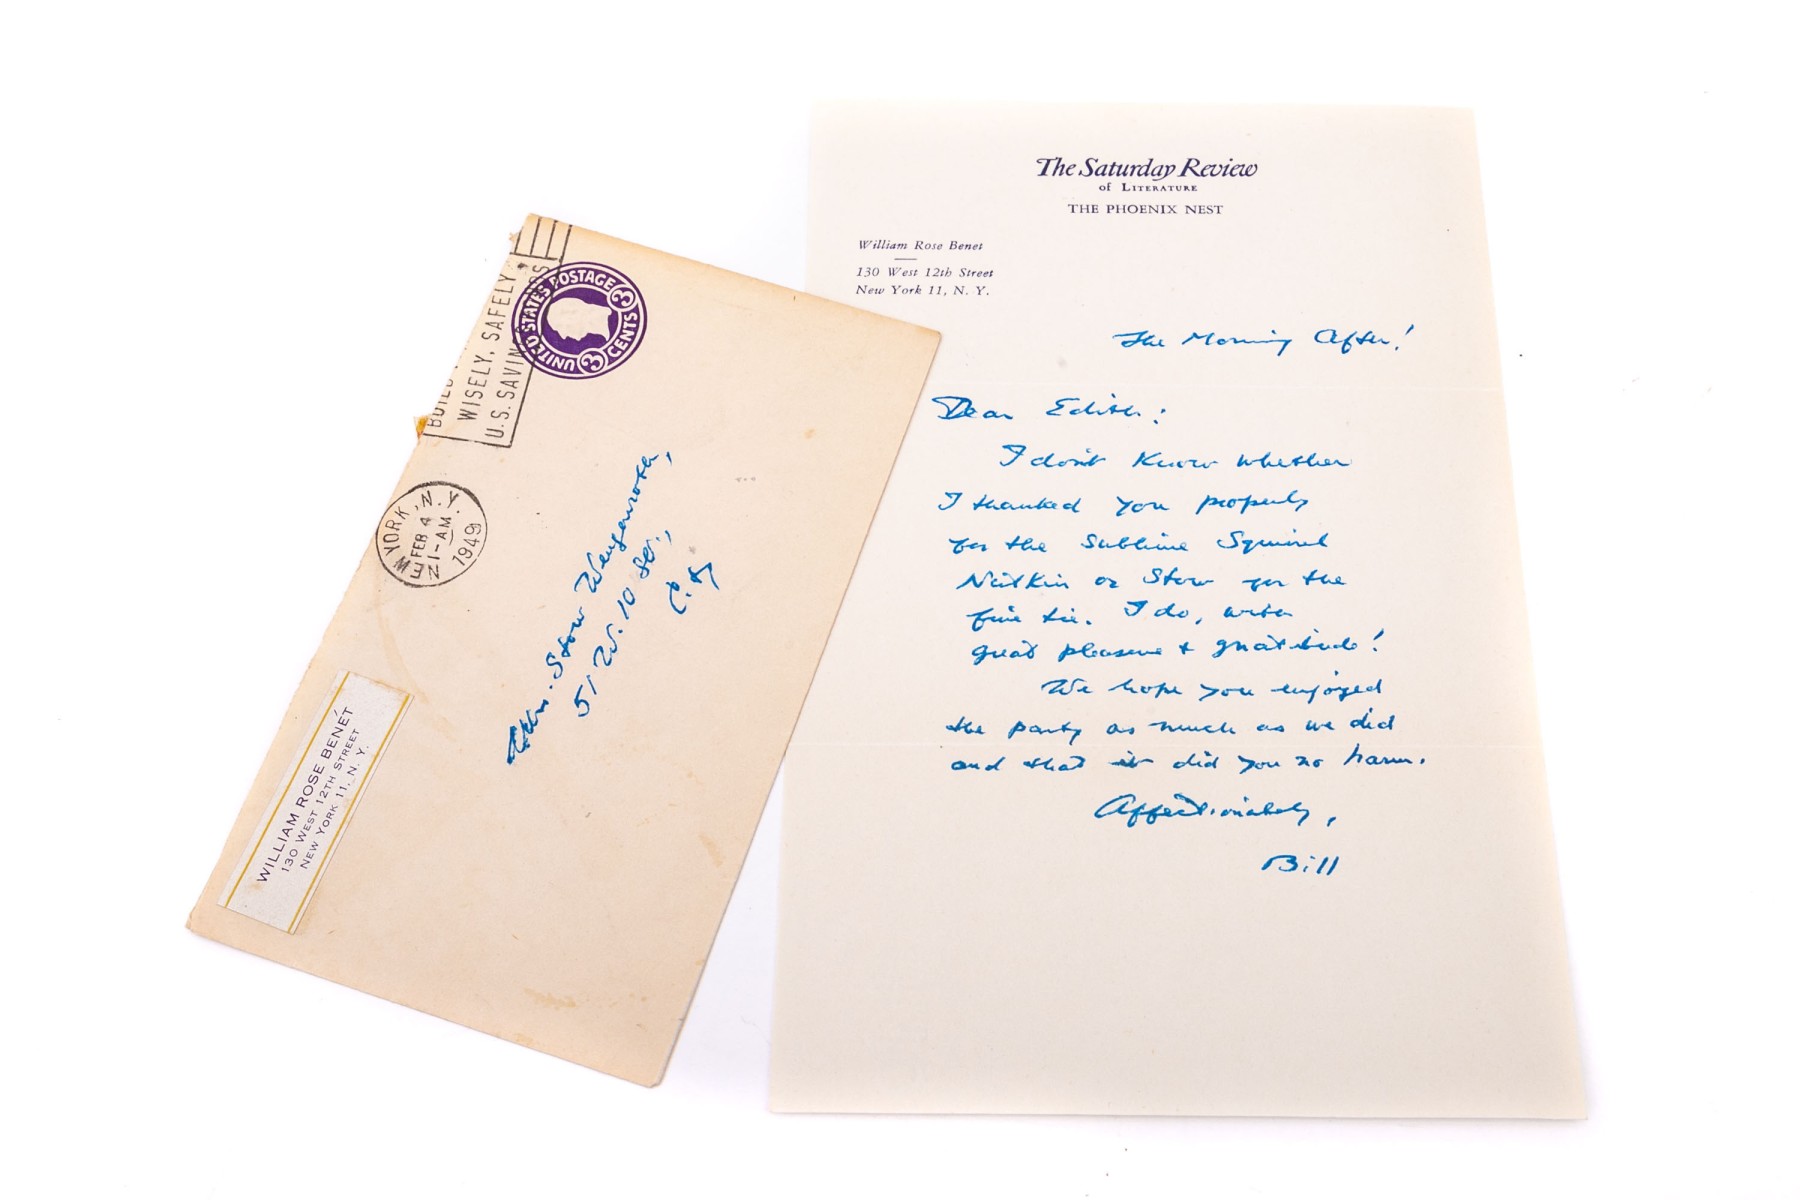 BUILD
WISELY, SAFELY,
U.S. SAVINGS BONDS
UNITED STATES POSTAGE
3 CENTS 3
NEW YORK, N.Y.
FEB 4
1-AM
1949
Stow Wengenroth,
51 W. 10 St.,
C.
WILLIAM ROSE BENÉT
130 WEST 12TH STREET
NEW YORK 11, N. Y.
The Saturday Review
of LITERATURE
THE PHOENIX NEST
William Rose Benet
130 West 12th Street
New York 11, N. Y.
The Morning After!
Dear Edith:
I don't know whether
I thanked you properly
for the Sublime Squirrel
Nutkin or Stow for the
fine tie. I do, with
great pleasure & gratitude!
We hope you enjoyed
the party as much as we did
and that it did you no harm.
Affectionately,
Bill